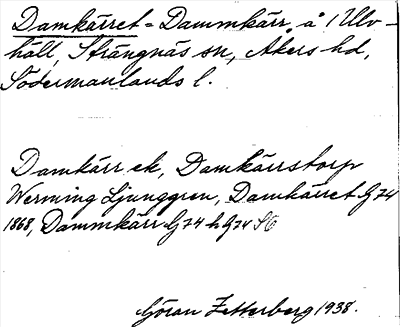 Damkärret = Dammkärr å 1 Ulv-
häll, Strängnäs sn, Åkers hd,
Södermanlands l.
Damkärr ek, Damkärrstorp
Werming Ljunggren, Damkärret G 74
1868, Dammkärr G 74 h G 74 SO
Göran Zetterberg 1938.